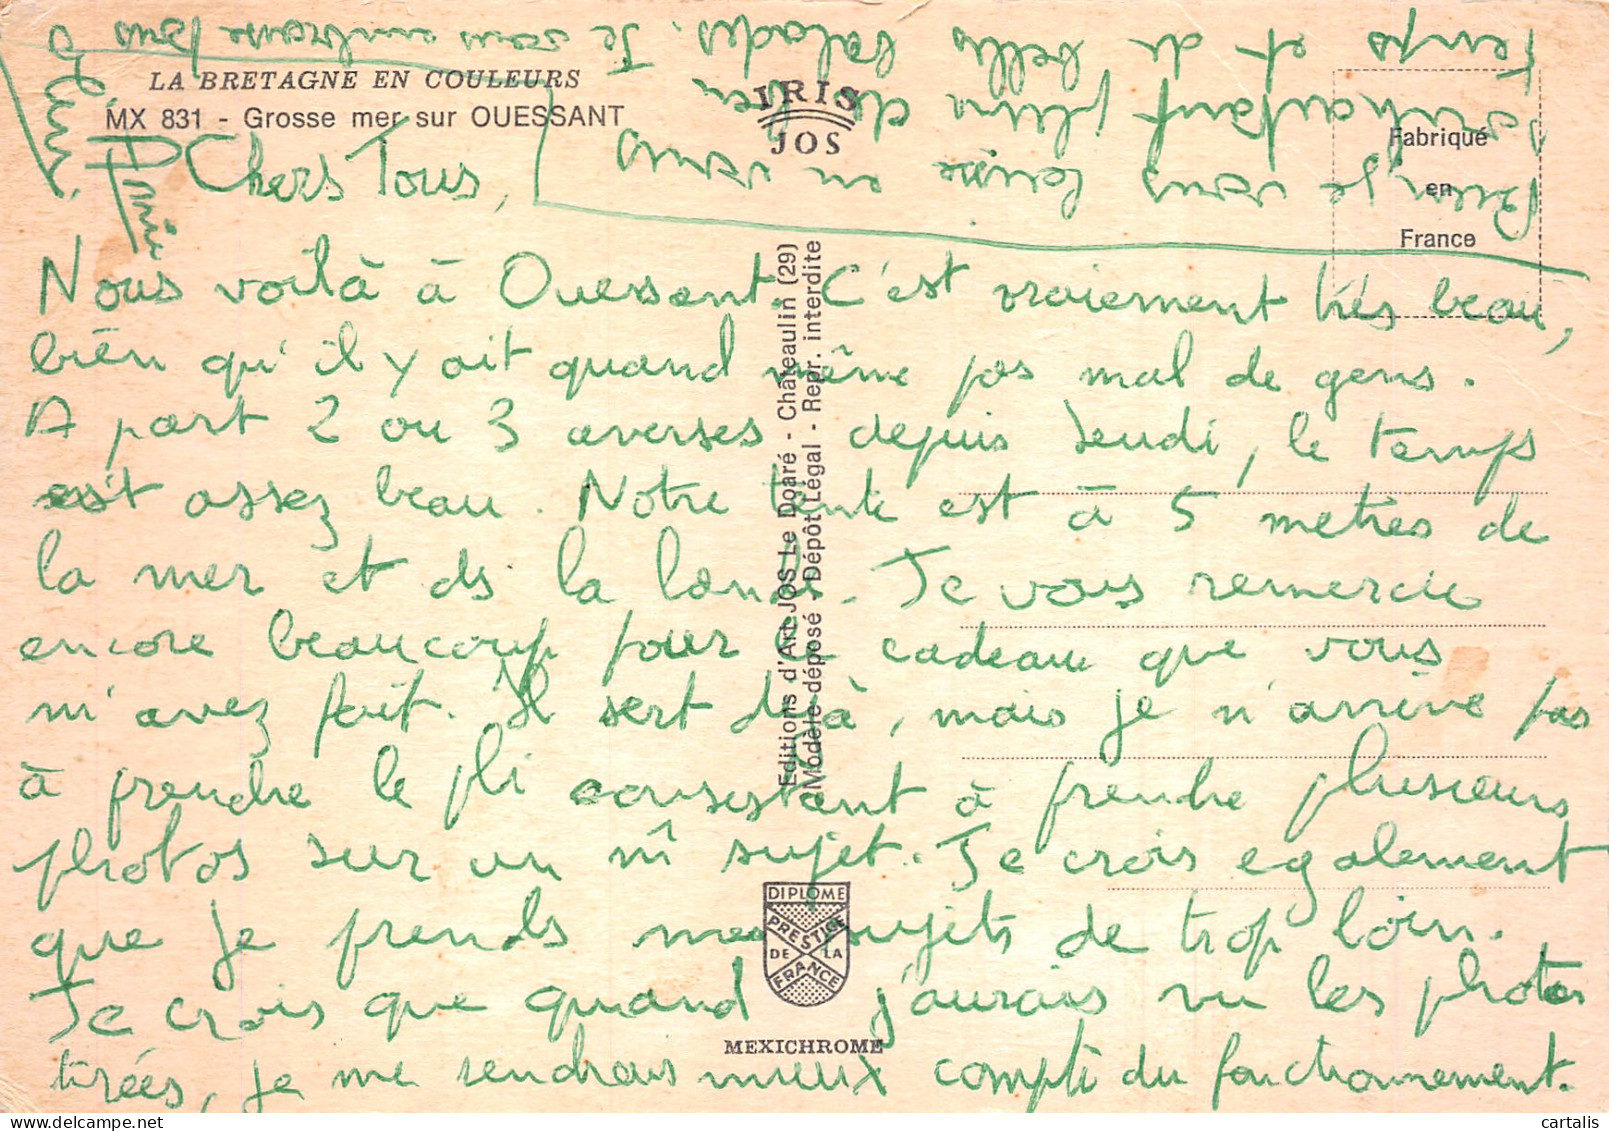 LA BRETAGNE EN COULEURS
MX 831 - Grosse mer sur OUESSANT
IRIS
JOS
Fabriqué
en
France
Chers Tous,
Nous voilà à Ouessant. C'est vraiement très beau,
bien qu'il y ait quand même pas mal de gens.
A part 2 ou 3 averses depuis Jeudi, le temps
est assez beau. Notre tente est à 5 mètres de
la mer et ds la lande. Je vous remercie
encore beaucoup pour ce cadeau que vous
m'avez fait. Il sert déjà, mais je n'arrive pas
à prendre le pli consistant à prendre plusieurs
photos sur un m̂ sujet. Je crois egalement
que je prends mes sujets de trop loin.
Je crois que quand j'aurais vu les photos
tirées, je me rendrais mieux compte du fonctionnement.
Bien, je vous laisse en vous
souhaitant plein de bon
temps et de belles balades. Je vous embrasse tous
Annie
Editions d'Art JOS Le Doaré - Châteaulin (29)
Modèle déposé - Dépôt Légal - Repr. interdite
DIPLOME
PRESTIGE
DE LA
FRANCE
MEXICHROME
cartalis